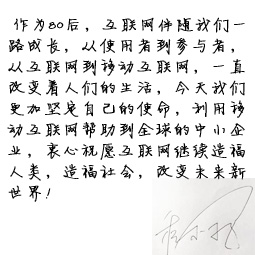 作为80后，互联网伴随我们一
路成长，从使用者到参与者，
从互联网到移动互联网，一直
改变着人们的生活，今天我们
更加坚定自己的使命，利用移
动互联网帮助到全球的中小企
业，衷心祝愿互联网继续造福
人类，造福社会，改变未来新
世界！